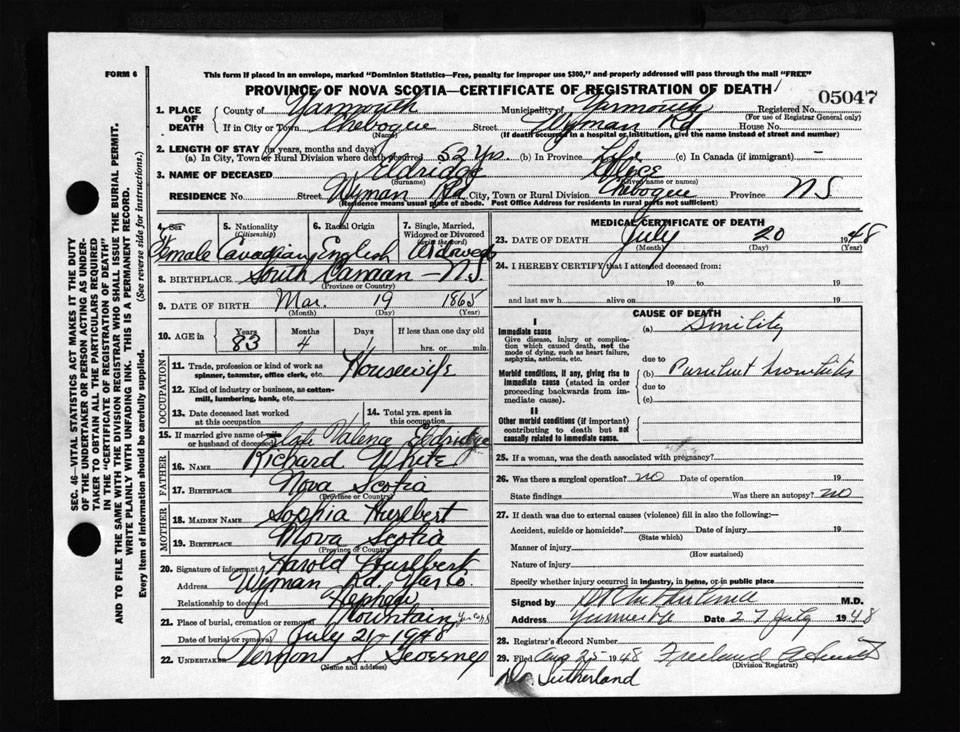 FORM 6
This form if placed in an envelope, marked "Dominion Statistics—Free, penalty for improper use $300," and properly addressed will pass through the mail "FREE"
PROVINCE OF NOVA SCOTIA—CERTIFICATE OF REGISTRATION OF DEATH
05047
1. PLACE OF DEATH County of Yarmouth Municipality of Yarmouth Registered No.
(For use of Registrar General only)
If in City or Town Chebogue Street Wyman Rd. House No.
(Name) (If death occurred in a hospital or institution, give the name instead of street and number)
2. LENGTH OF STAY (in years, months and days)
(a) In City, Town or Rural Division where death occurred 52 Yrs. (b) In Province Life (c) In Canada (if immigrant) —
3. NAME OF DECEASED Eldridge
(Surname) (Given name or names)
RESIDENCE No. Street Wyman Rd. City, Town or Rural Division Chebogue Province N S
(Residence means usual place of abode. Post Office Address for residents in rural parts not sufficient)
4. Sex Female
5. Nationality (Citizenship) Canadian
6. Racial Origin English
7. Single, Married, Widowed or Divorced (write the word) Widowed
8. BIRTHPLACE South Canaan — N.S.
(Province or Country)
9. DATE OF BIRTH Mar. 19 1865
(Month) (Day) (Year)
10. AGE in Years 83 Months 4 Days 1 If less than one day old hrs. or min.
OCCUPATION
11. Trade, profession or kind of work as spinner, teamster, office clerk, etc. Housewife
12. Kind of industry or business, as cotton-mill, lumbering, bank, etc.
13. Date deceased last worked at this occupation
14. Total yrs. spent in this occupation
15. If married give name of wife or husband of deceased Late Valence Eldridge
FATHER
16. NAME Richard White
17. BIRTHPLACE Nova Scotia
(Province or Country)
MOTHER
18. MAIDEN NAME Sophia Hurlbert
19. BIRTHPLACE Nova Scotia
(Province of Country)
20. Signature of informant Harold Hurlbert
Address Wyman Rd. Yar Co.
Relationship to deceased Nephew
21. Place of burial, cremation or removal Mountain
Date of burial or removal July 21 1948
22. UNDERTAKER Vernont S. Sweeney
(Name and address)
MEDICAL CERTIFICATE OF DEATH
23. DATE OF DEATH July 20 1948
(Month) (Day) (Year)
24. I HEREBY CERTIFY that I attended deceased from:
19 to 19
and last saw h alive on 19
CAUSE OF DEATH
I
Immediate cause
Give disease, injury or complication which caused death, not the mode of dying, such as heart failure, asphyxia, asthenia, etc.
(a) Sinility
due to
Morbid conditions, if any, giving rise to immediate cause (stated in order proceeding backwards from immediate cause).
(b) Purulent bronchitis
due to
(c)
II
Other morbid conditions (if important) contributing to death but not causally related to immediate cause.
25. If a woman, was the death associated with pregnancy?
26. Was there a surgical operation? no Date of operation 19
State findings Was there an autopsy? no
27. If death was due to external causes (violence) fill in also the following:—
Accident, suicide or homicide? Date of injury 19
(State which)
Manner of injury
(How sustained)
Nature of injury
Specify whether injury occurred in industry, in home, or in public place
Signed by M.D.
Address Date 27 July 1948
28. Registrar's Record Number
29. Filed Aug 25 1948 Freeland
(Division Registrar)
Dr. Sutherland
SEC. 46—VITAL STATISTICS ACT MAKES IT THE DUTY OF THE UNDERTAKER OR PERSON ACTING AS UNDERTAKER TO OBTAIN ALL THE PARTICULARS REQUIRED IN THE "CERTIFICATE OF REGISTRATION OF DEATH" AND TO FILE THE SAME WITH THE DIVISION REGISTRAR WHO SHALL ISSUE THE BURIAL PERMIT.
WRITE PLAINLY WITH UNFADING INK. THIS IS A PERMANENT RECORD.
Every item of information should be carefully supplied. (See reverse side for instructions.)